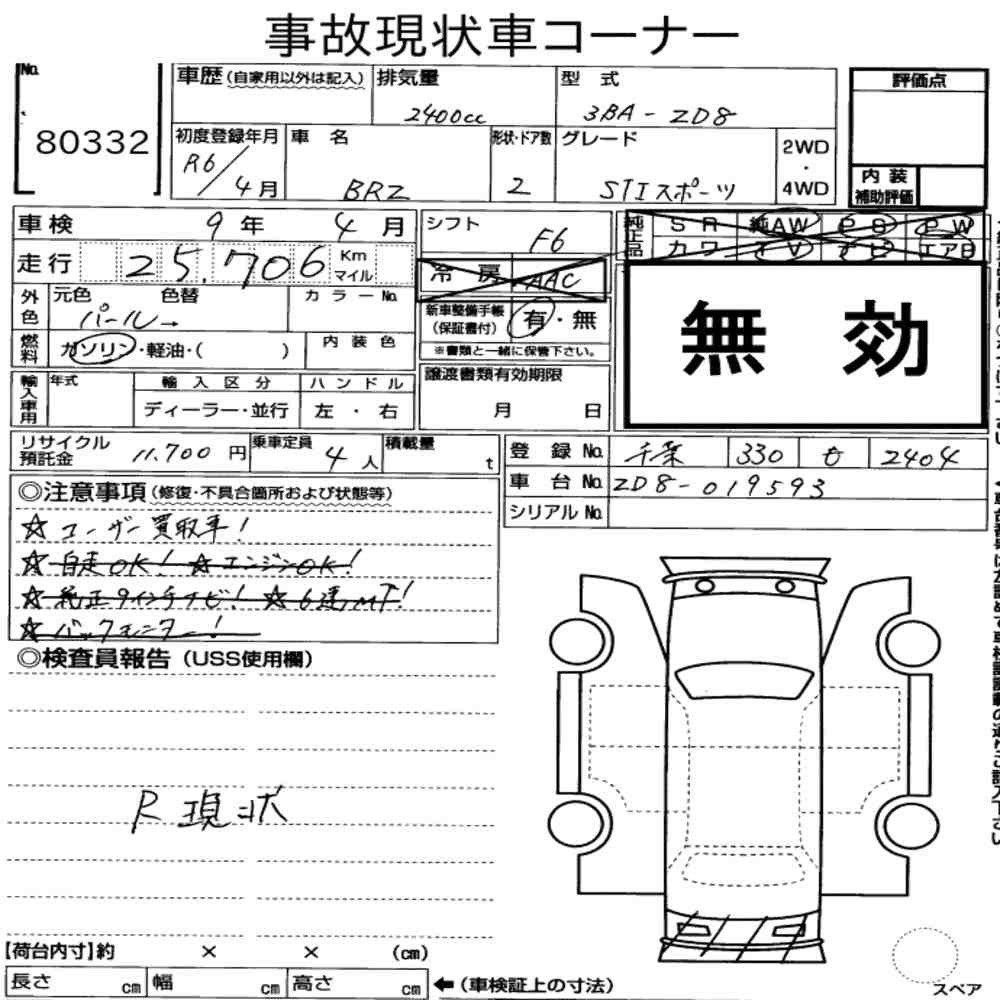 事故現状車コーナー
No. 80332
車歴(自家用以外は記入) 排気量 2400cc 型 式 3BA-ZD8
評価点
初度登録年月 R6/4月 車 名 BRZ 形状・ドア数 2 グレード STIスポーツ 2WD・4WD
内装補助評価
車検 9年 4月 シフト F6
純正品 SR 純AW PS PW
カワ TV ナビ エアB
走行 25.706 Km マイル
冷房 AAC
外色 元色 パール→ 色替 カラーNo.
新車整備手帳(保証書付) 有・無
無 効
燃料 ガソリン・軽油・( ) 内装色
※書類と一緒に保管下さい。
輸入車用 年式 輸入区分 ハンドル
ディーラー・並行 左・右
譲渡書類有効期限
月 日
リサイクル預託金 11.700円 乗車定員 4人 積載量 t
登録No. 千葉 330 2404
車台No. ZD8-019593
シリアルNo.
◎注意事項(修復・不具合箇所および状態等)
☆ユーザー買取車!
☆自走OK! ☆エンジンOK!
☆純正9インチナビ! ☆6速MT!
☆バックモニター!
◎検査員報告(USS使用欄)
R 現状
【荷台内寸】約 × × (cm)
長さ cm 幅 cm 高さ cm ←(車検証上の寸法)
スペア